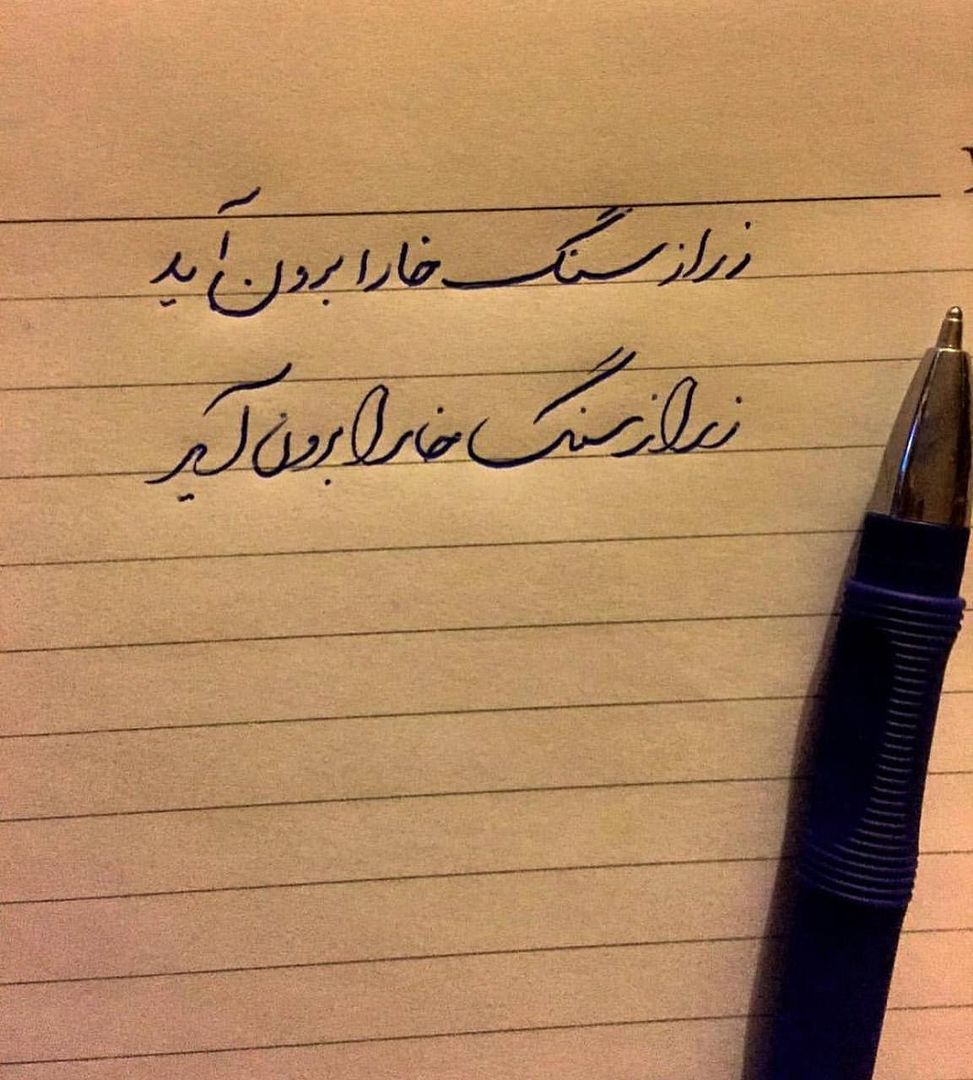 زر از سنگ خارا برون آید
زر از سنگ خارا برون آید